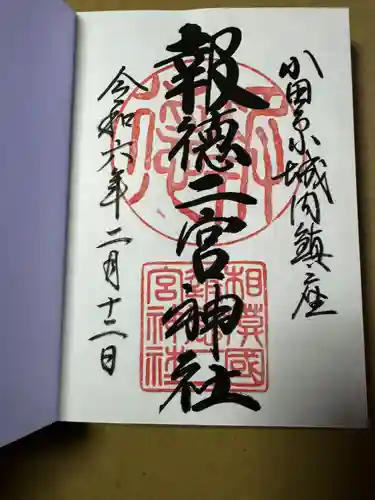 小田原小城内鎮座
報徳二宮神社
令和六年二月十二日
相模國
報徳二
宮神社